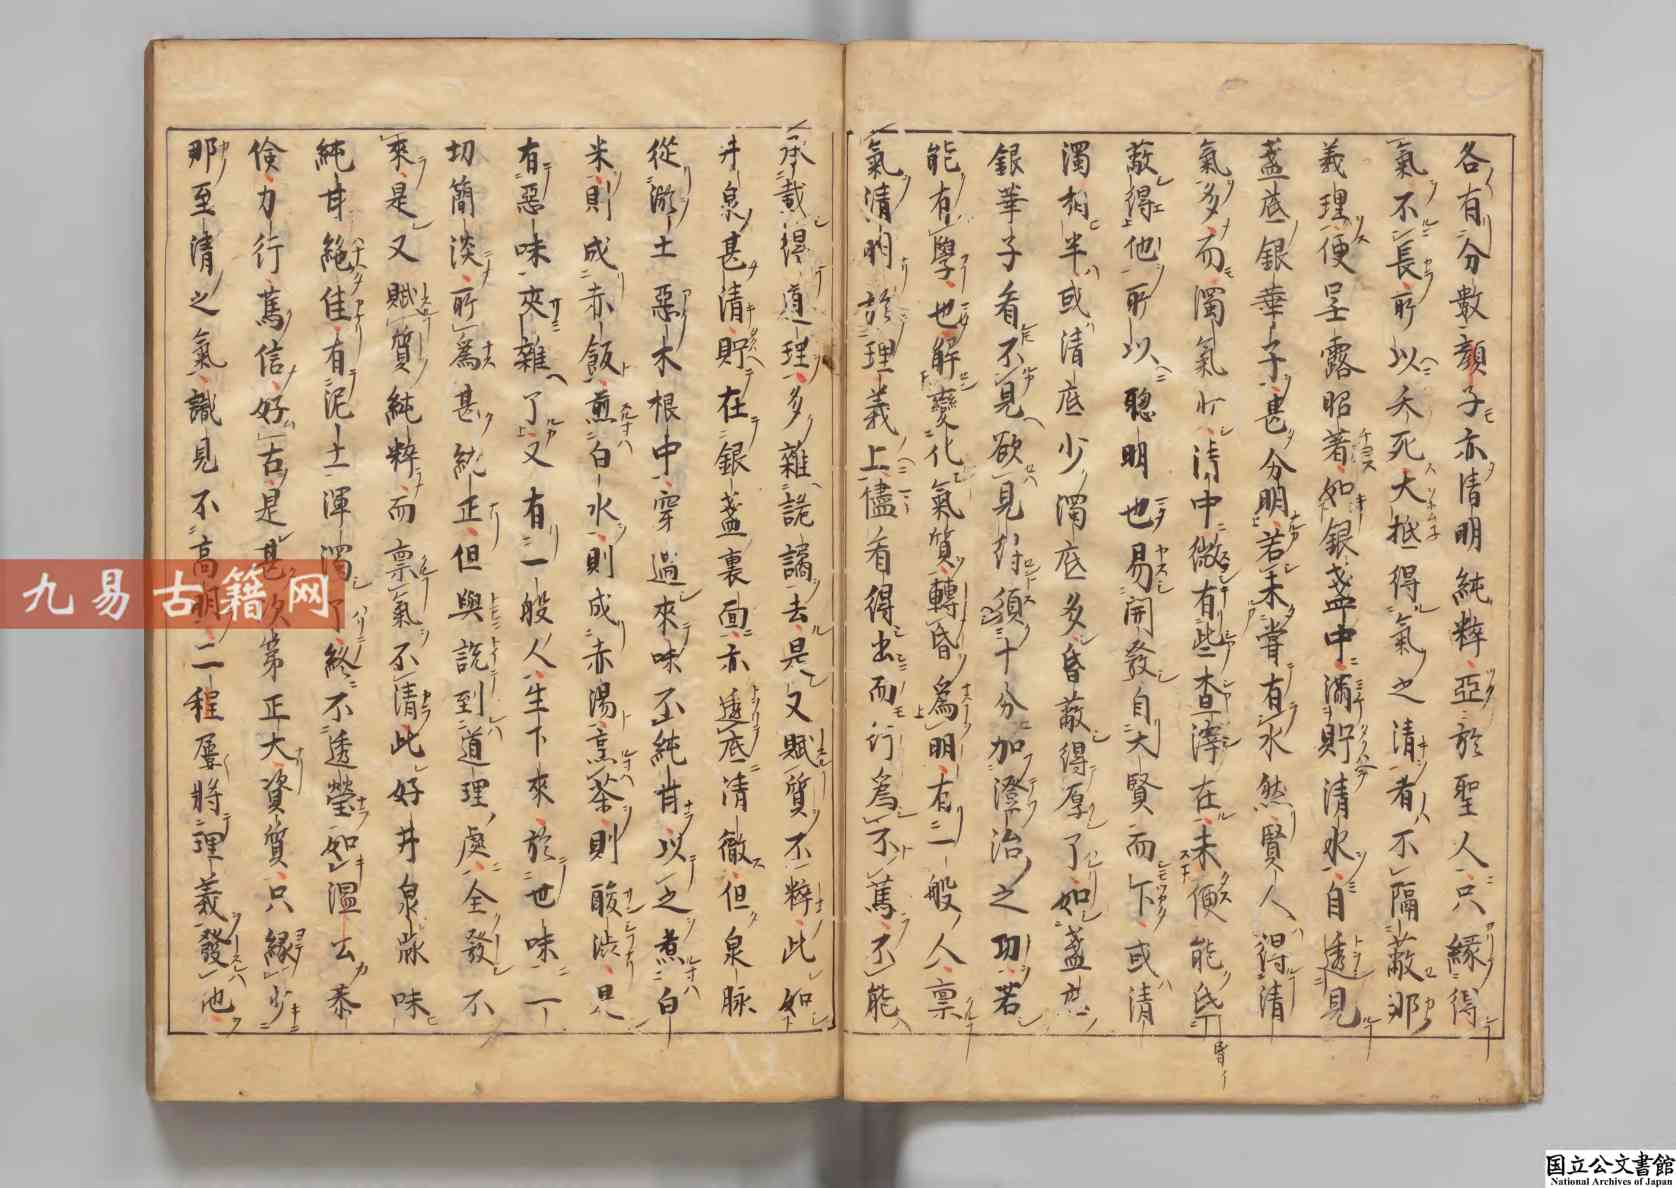 各有分數顔子亦清明純粹亞於聖人只緣得
氣不長所以夭死大抵得氣之清者不隔蔽那
義理便呈露昭著如銀盞中滿貯清水自透見
盞底銀華子甚分明若未甞有水然賢人得清
氣多而濁氣少清中微有些查滓在未便能昏
蔽得他所以聰明也易開發自大賢而下或清
濁相半或清底少濁底多昏蔽得厚了如盞底
銀華子看不見欲見得須十分加澄治之功若
能有學也解變化氣質轉昏爲明有一般人禀
氣清明於理義上儘看得出而行為不篤不能
承載得道理多雜詭譎去是又賦質不粹此如
井泉甚清貯在銀盞裏面亦透底清徹但泉脉
從淤土惡木根中穿過來味不純甘以之煮白
米則成赤飯煎白水則成赤湯烹茶則酸澁是
有惡味夾雜了又有一般人生下來於世味一
切簡淡所爲甚純正但與說到道理處全發不
來是又賦質純粹而禀氣不清此好井泉脉味
純甘絶佳有泥土渾濁了終不透瑩如温公恭
儉力行篤信好古是甚次第正大資質只緣少
那至清之氣識見不高明二程屢將理義發他
昏
九易古籍网
国立公文書館
National Archives of Japan